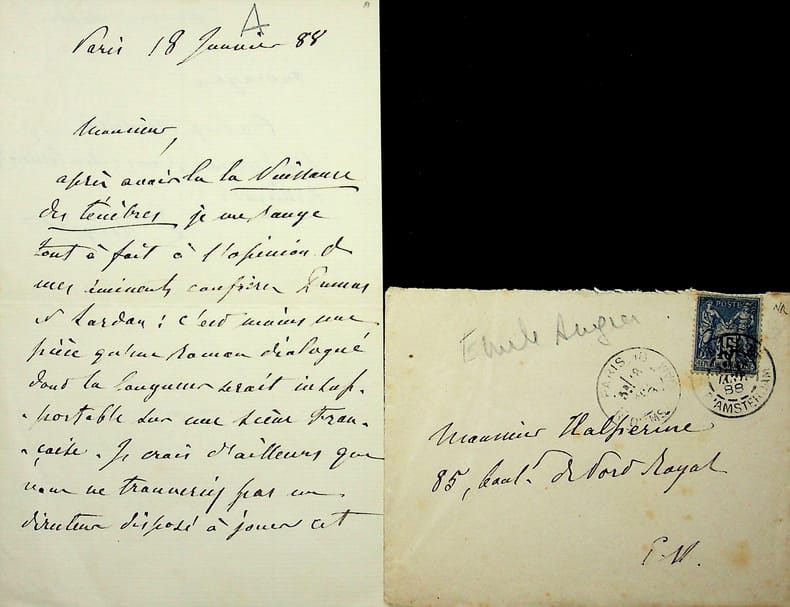 A
Paris 18 Janvier 88
Monsieur,
après avoir lu la Puissance
des ténèbres je me range
tout à fait à l'opinion de
mes éminents confrères Dumas
et Sardou : c'est moins une
pièce qu'un roman dialogué
dont la longueur serait insup-
-portable sur une scène Fran-
-çaise. Je crois d'ailleurs que
vous ne trouveriez pas un
directeur disposé à jouer cet
Emile Augier
POSTE
15
PARIS
88
D'AMSTERDAM
Monsieur Halperine
85, boul. de Port Royal
E.V.